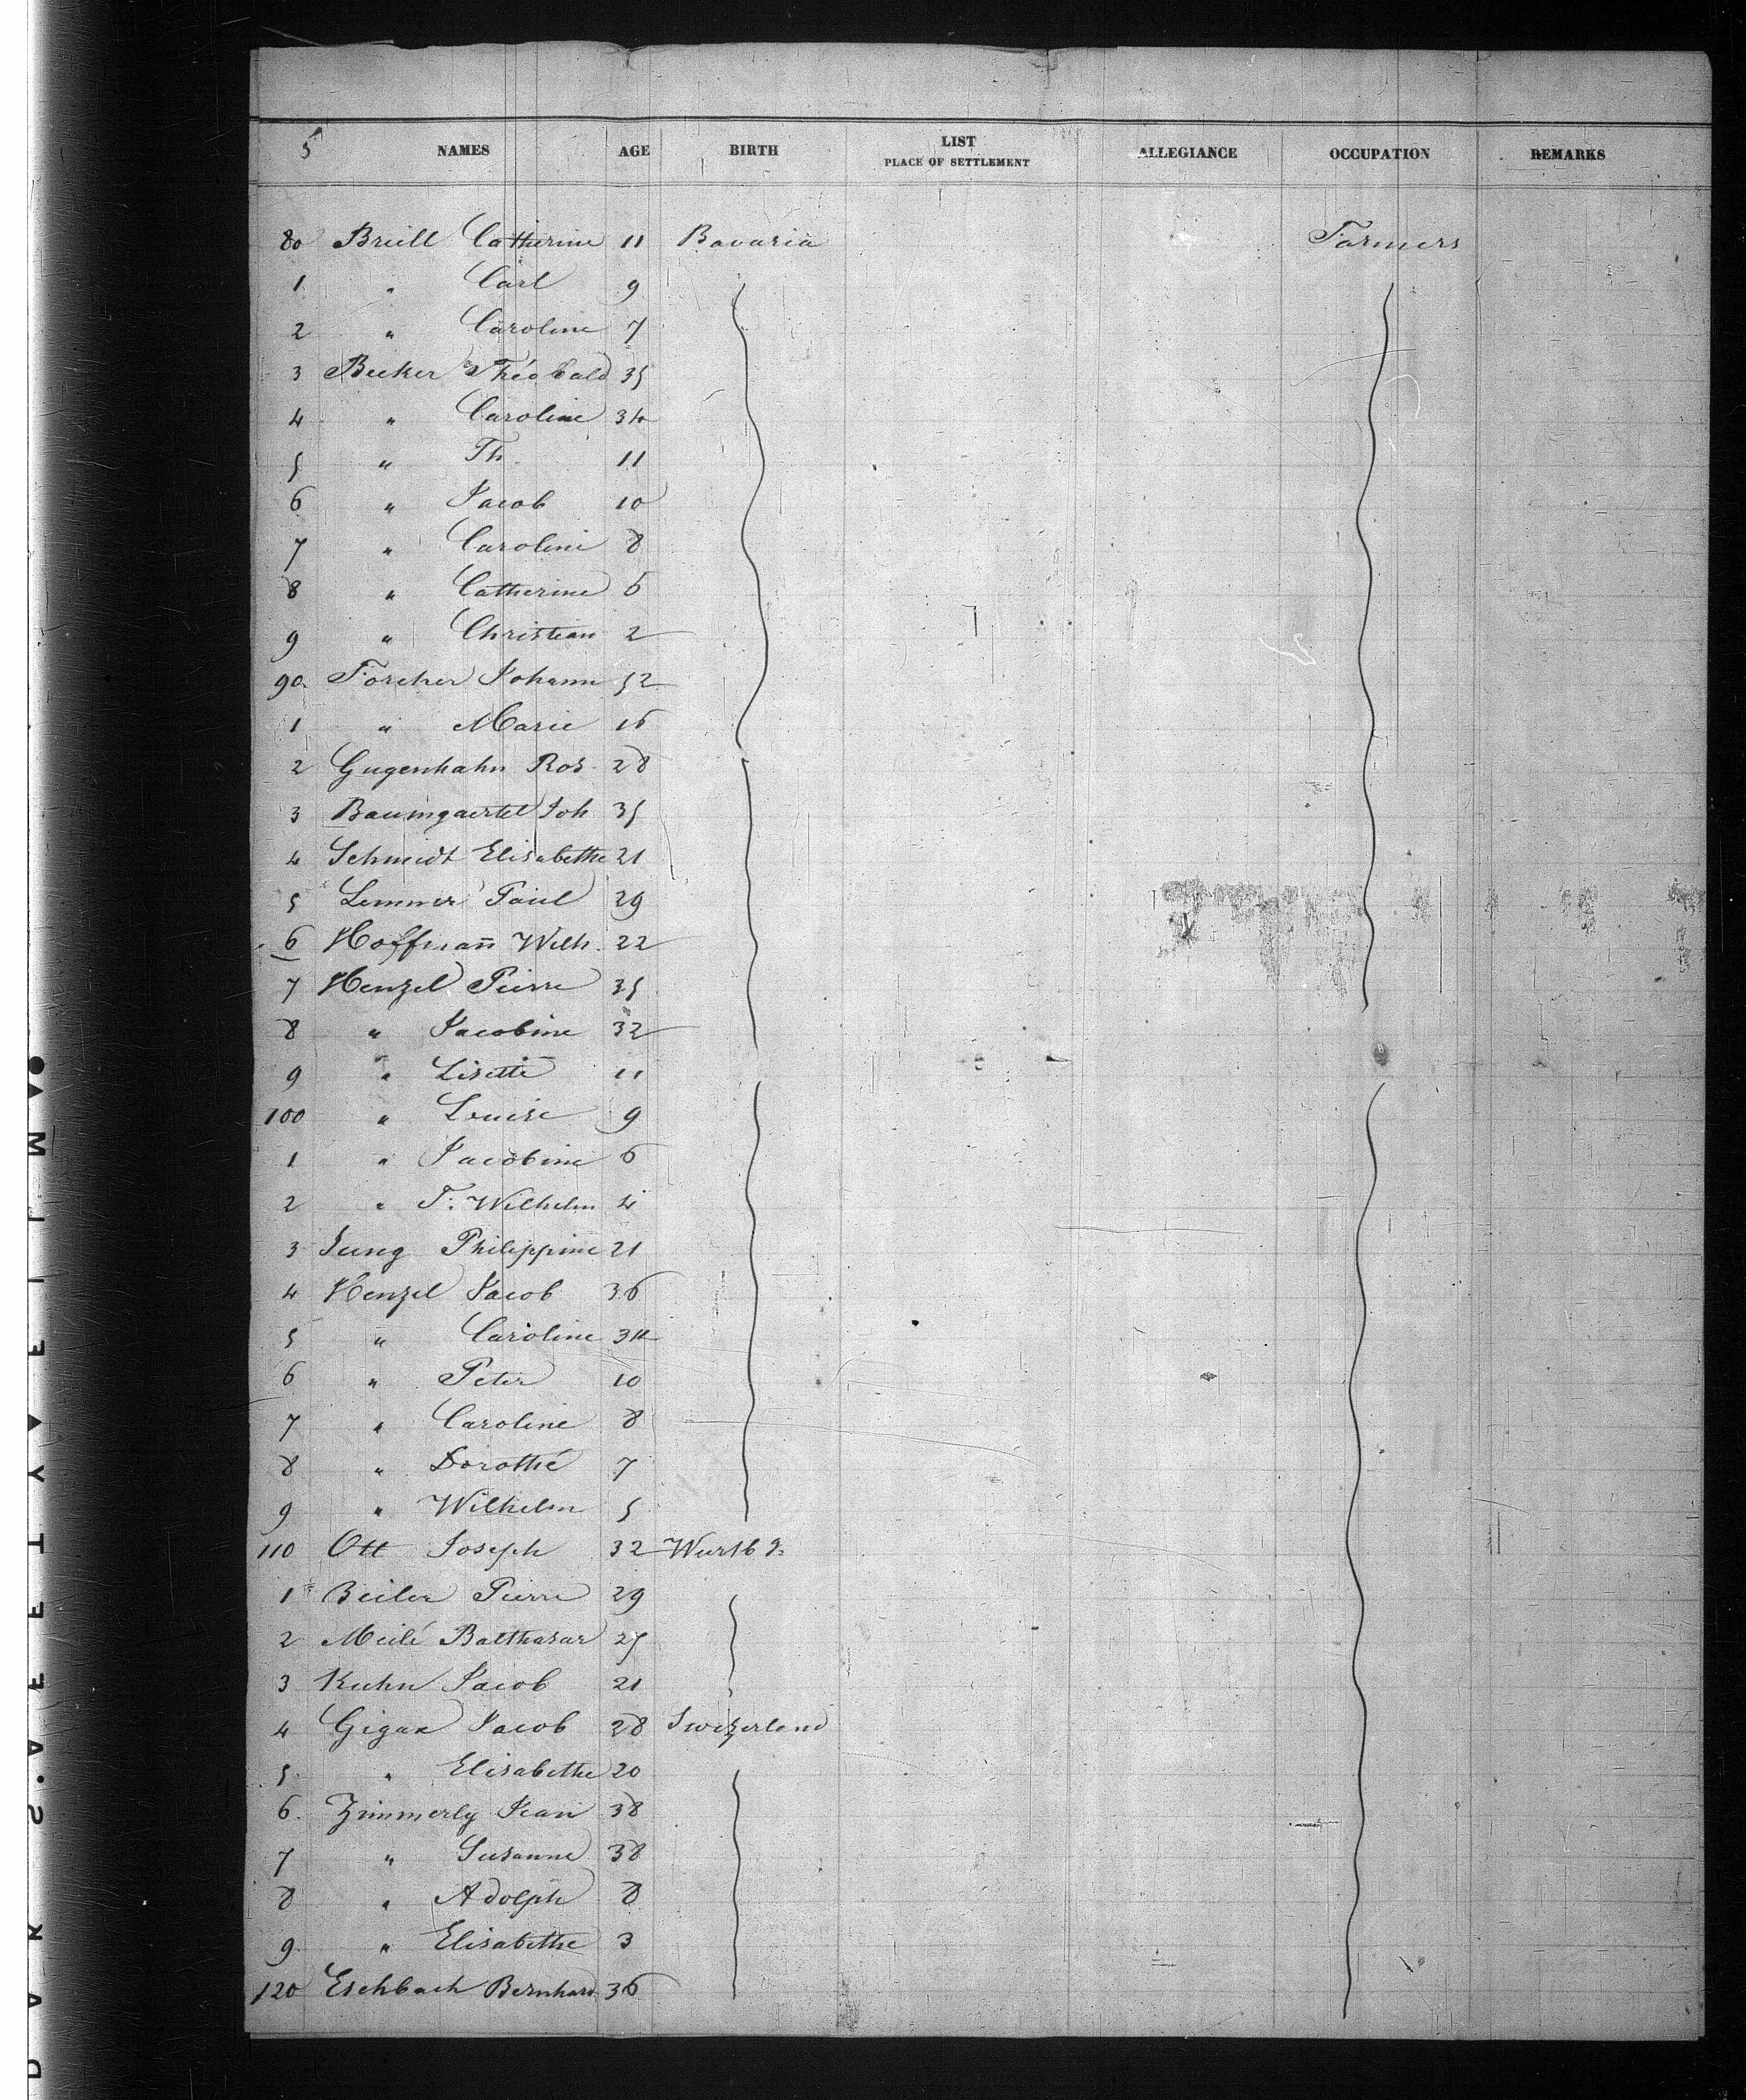 5 NAMES AGE BIRTH LIST PLACE OF SETTLEMENT ALLEGIANCE OCCUPATION REMARKS
80 Breill Catherine 11 Bavaria Farmers
1 " Carl 9
2 " Caroline 7
3 Becker Théobald 35
4 " Caroline 34
5 " Th. 11
6 " Jacob 10
7 " Caroline 8
8 " Catherine 6
9 " Christian 2
90 Forcher Johann 52
1 " Marie 16
2 Gugenhahn Ros. 28
3 Baumgaertel Joh 35
4 Schmidt Elisabethe 21
5 Lemmer Paul 29
6 Hoffmann̄ Wilh. 22
7 Henzel Pierre 35
8 " Jacobine 32
9 " Lisette 11
100 " Louise 9
1 " Jacobine 6
2 " F. Wilhelm 4
3 Jung Philippine 21
4 Henzel Jacob 36
5 " Caroline 34
6 " Peter 10
7 " Caroline 8
8 " Dorothé 7
9 " Wilhelm 5
110 Ott Joseph 32 Wurtbg:
1 Beiler Pierre 29
2 Meilé Balthasar 27
3 Kuhn Jacob 21
4 Gigax Jacob 28 Switzerland
5 " Elisabethe 20
6. Zimmerly Jean 38
7 " Susanne 38
8 " Adolph 8
9 " Elisabethe 3
120 Eschbach Bernhard 36